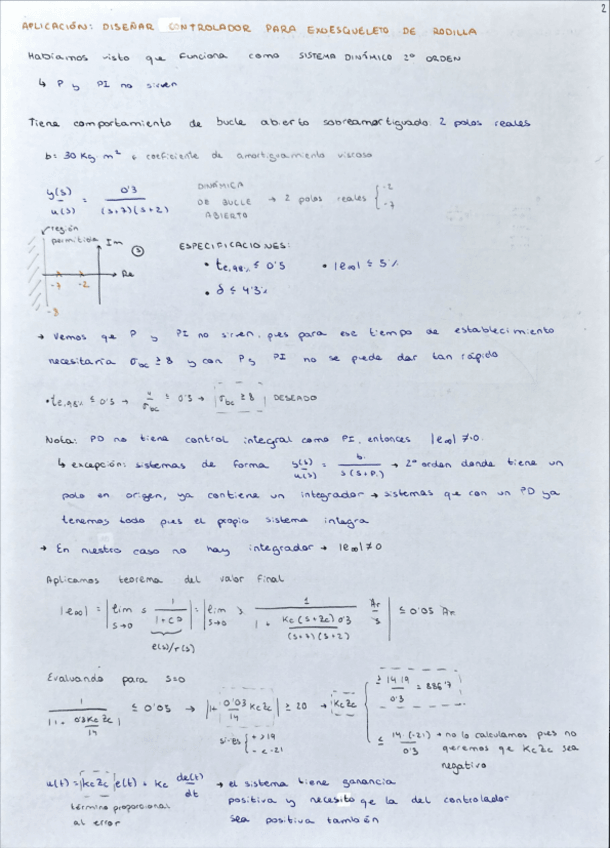 2
APLICACIÓN: DISEÑAR CONTROLADOR PARA EXOESQUELETO DE RODILLA
Habíamos visto que funciona como SISTEMA DINÁMICO 2º ORDEN
↳ P y PI no sirven
Tiene comportamiento de bucle abierto sobreamortiguado. 2 polos reales
b = 30 Kg m² → coeficiente de amortiguamiento viscoso
y(s)/u(s) = 0'3/((s+7)(s+2))
DINÁMICA DE BUCLE ABIERTO → 2 polos reales { -2 -7
región permitida
Im
(s)
Re
-7 -2
-8
ESPECIFICACIONES:
• te,98% ≤ 0'5 • |e∞| ≤ 5%
• δ ≤ 4'3%
→ Vemos que P y PI no sirven, pues para ese tiempo de establecimiento
necesitaría σbc ≥ 8 y con P y PI no se puede dar tan rápido
• te,98% ≤ 0'5 → 4/σbc ≤ 0'5 → |σbc ≥ 8| DESEADO
Nota: PD no tiene control integral como PI, entonces |e∞| ≠ 0.
↳ excepción: sistemas de forma y(s)/u(s) = b/(s(s+p.)) → 2º orden donde tiene un
polo en origen, ya contiene un integrador → sistemas que con un PD ya
tenemos todo pues el propio sistema integra
→ En nuestro caso no hay integrador → |e∞| ≠ 0
Aplicamos teorema del valor final
|e∞| = |lim s→0 s 1/(1+CP)| = |lim s→0 s 1/(1 + Kc(s+Zc)0'3/((s+7)(s+2))) Ar/s| ≤ 0'05 Ar
e(s)/r(s)
Evaluando para s=0
1/|1 + 0'3KcZc/14| ≤ 0'05 → |1+ 0'03/14 KcZc| ≥ 20 → KcZc { ≥ 14·19/0'3 = 886'7
≤ 14·(-21)/0'3 → no lo calculamos pues no
queremos que KcZc sea
negativo
si es { + > 19 - < -21
u(t) = |KcZc| e(t) + Kc de(t)/dt → el sistema tiene ganancia
positiva y necesito que la del controlador
sea positiva también
término proporcional
al error